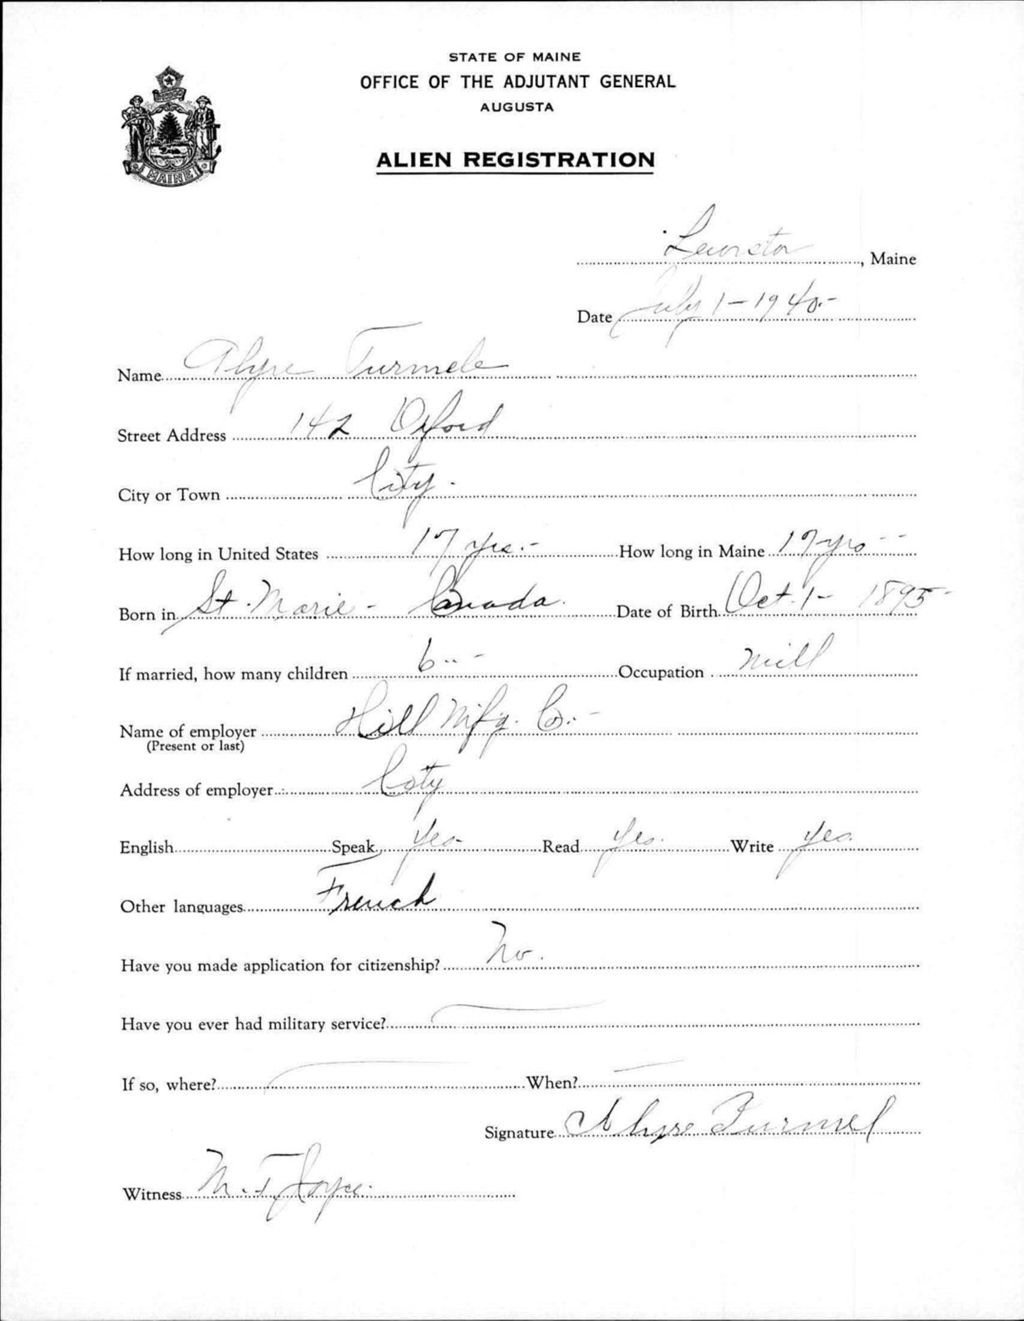 STATE OF MAINE
OFFICE OF THE ADJUTANT GENERAL
AUGUSTA
ALIEN REGISTRATION
MAINE
Lewiston, Maine
Date July 1-1940-
Name Alyre Turmele
Street Address 142 Oxford
City or Town City-
How long in United States 17 yrs.- How long in Maine 17 yrs--
Born in St. Marie - Canada. Date of Birth Oct. 1- 1895-
If married, how many children 6--- Occupation mill
Name of employer Hill Mfg. Co.-
(Present or last)
Address of employer City
English Speak Yes- Read Yes. Write Yes.
Other languages French
Have you made application for citizenship? No.
Have you ever had military service? —
If so, where? — When? —
Signature Alyre Turmel
Witness M. F. Joyce.